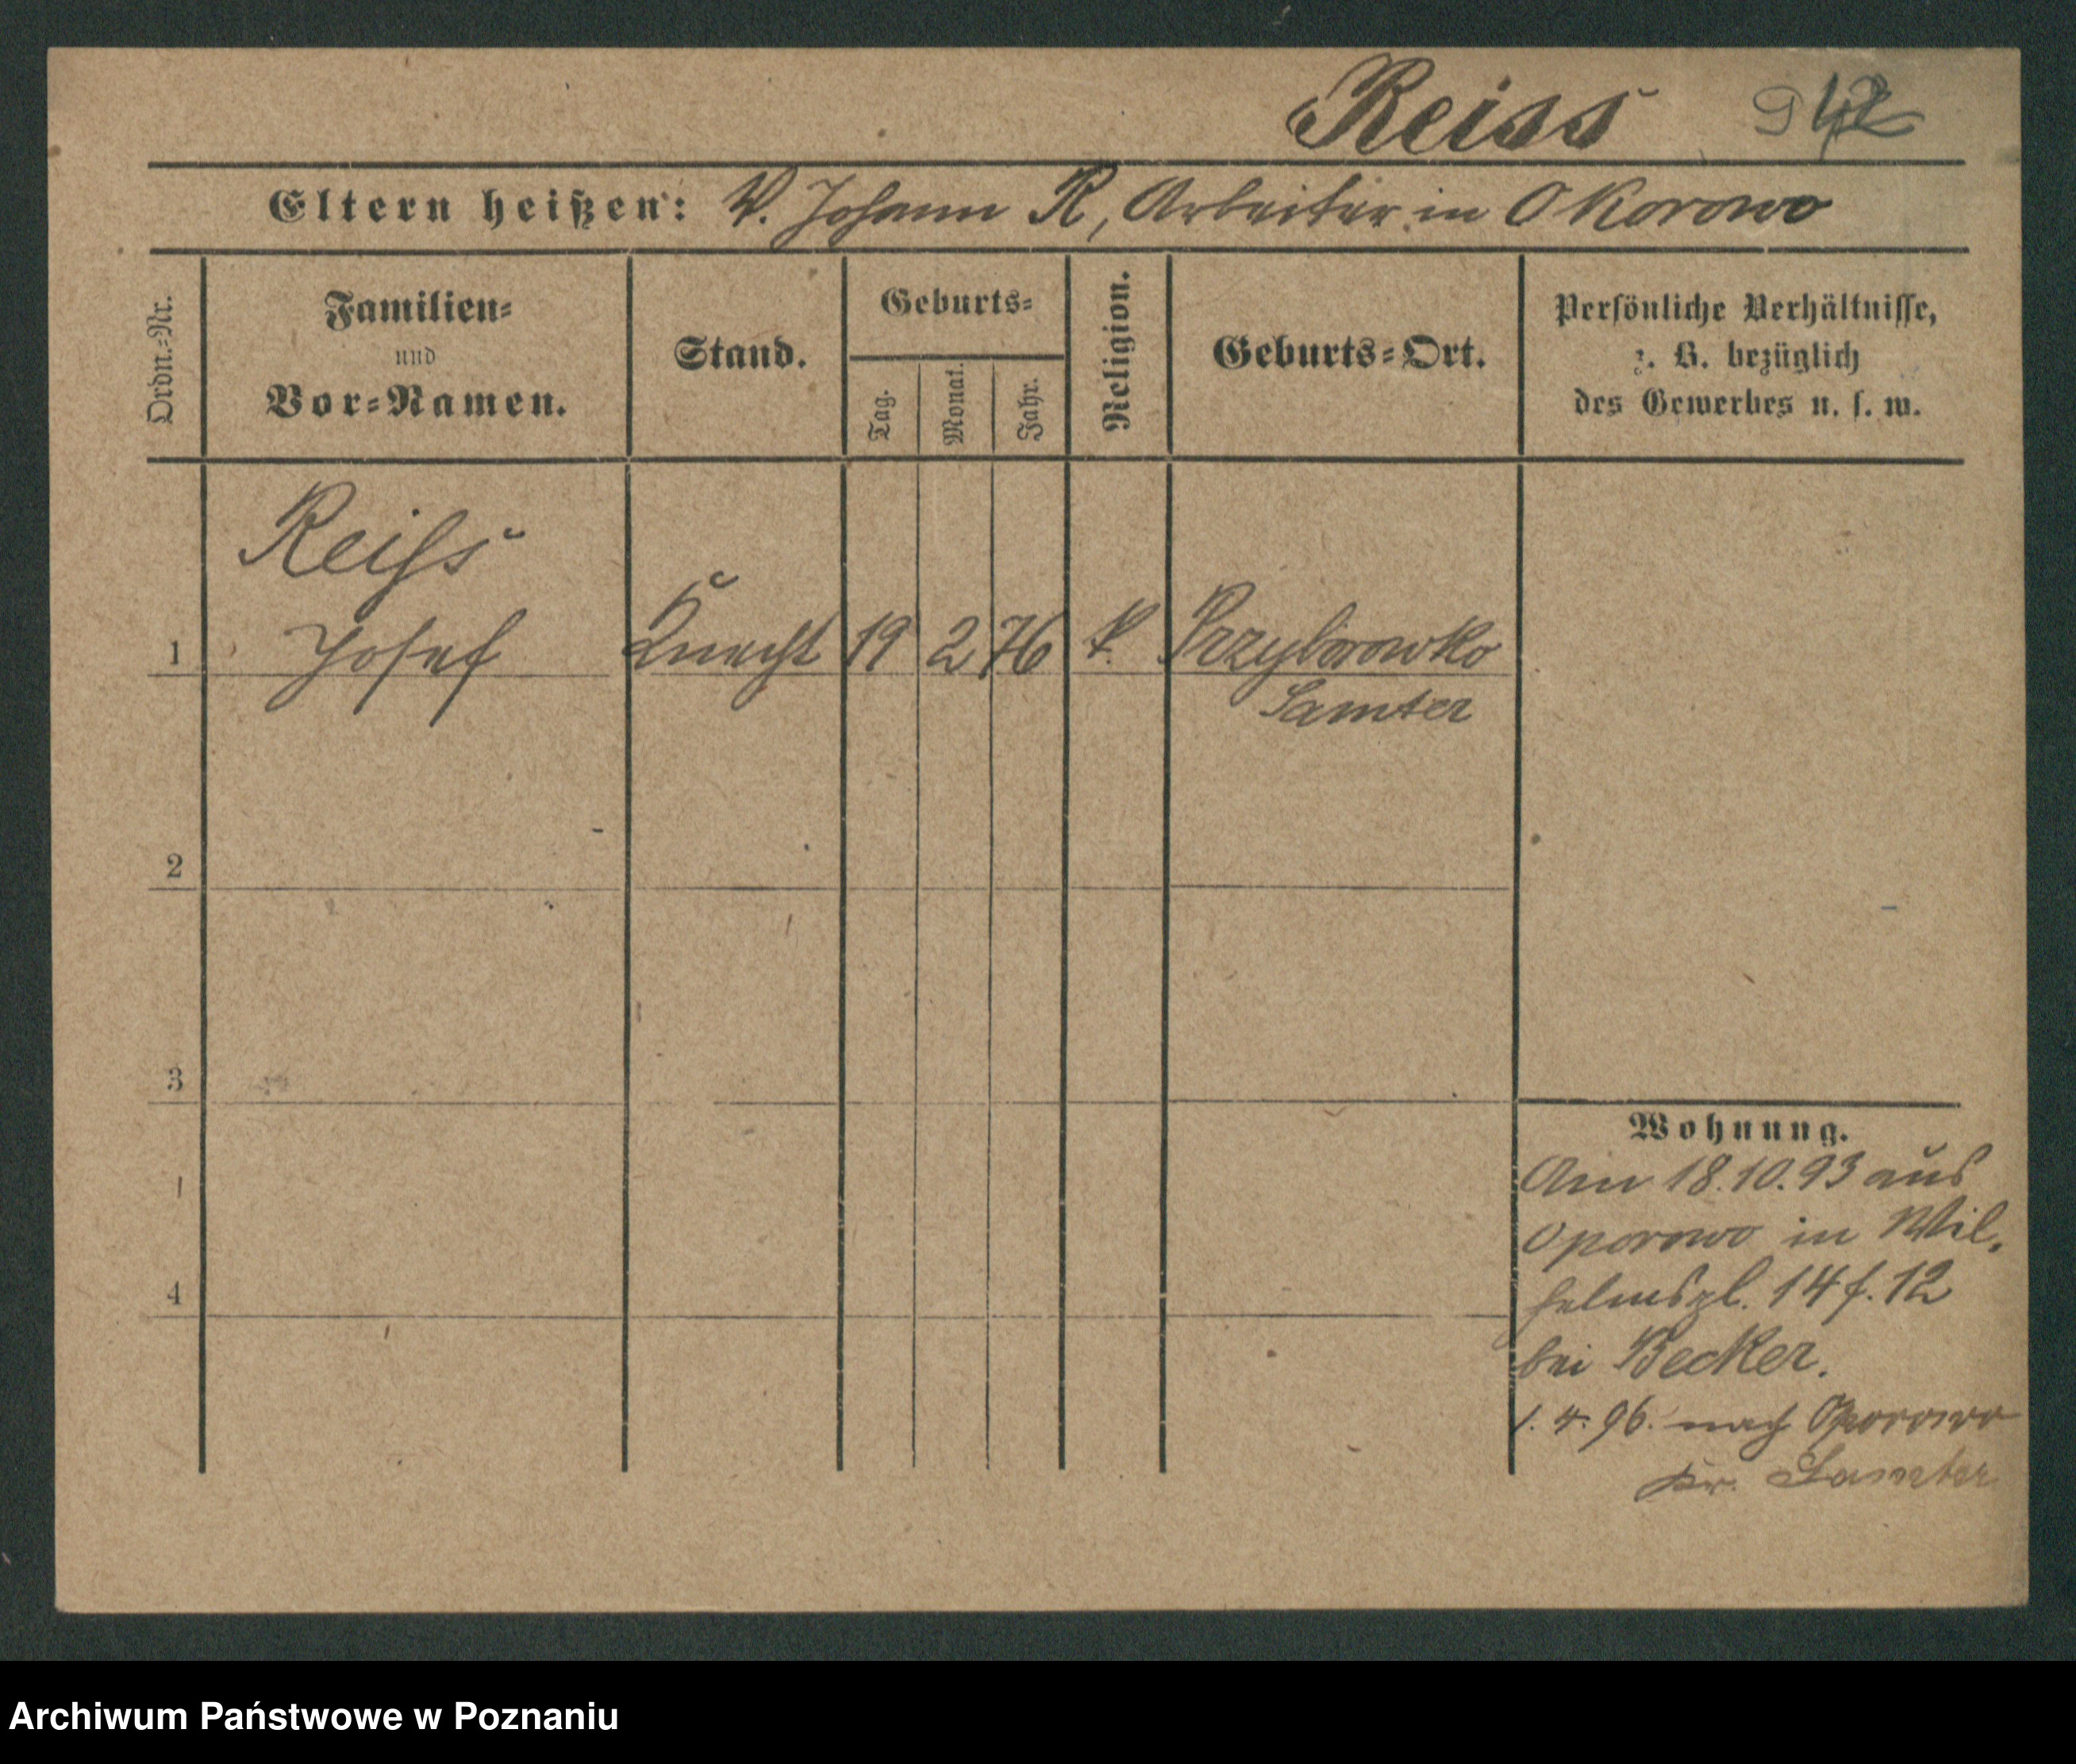 Reiss
Eltern heißen: V. Johann R, Arbeiter in Okorowo
Ordn.-Nr.
Familien-
und
Vor-Namen.
Stand.
Geburts-
Tag.
Monat.
Jahr.
Religion.
Geburts-Ort.
Persönliche Verhältnisse,
z. B. bezüglich
des Gewerbes u. s. w.
Reiſs
1 Josef Knecht 19 2 76 k. Przyborowko
Samter
2
3
4
Wohnung.
Am 18.10.93 aus
Oporowo in Wil-
helmspl. 14 f. 12
bei Becker.
1. 4. 96. nach Oporowo
Kr. Samter
Archiwum Państwowe w Poznaniu